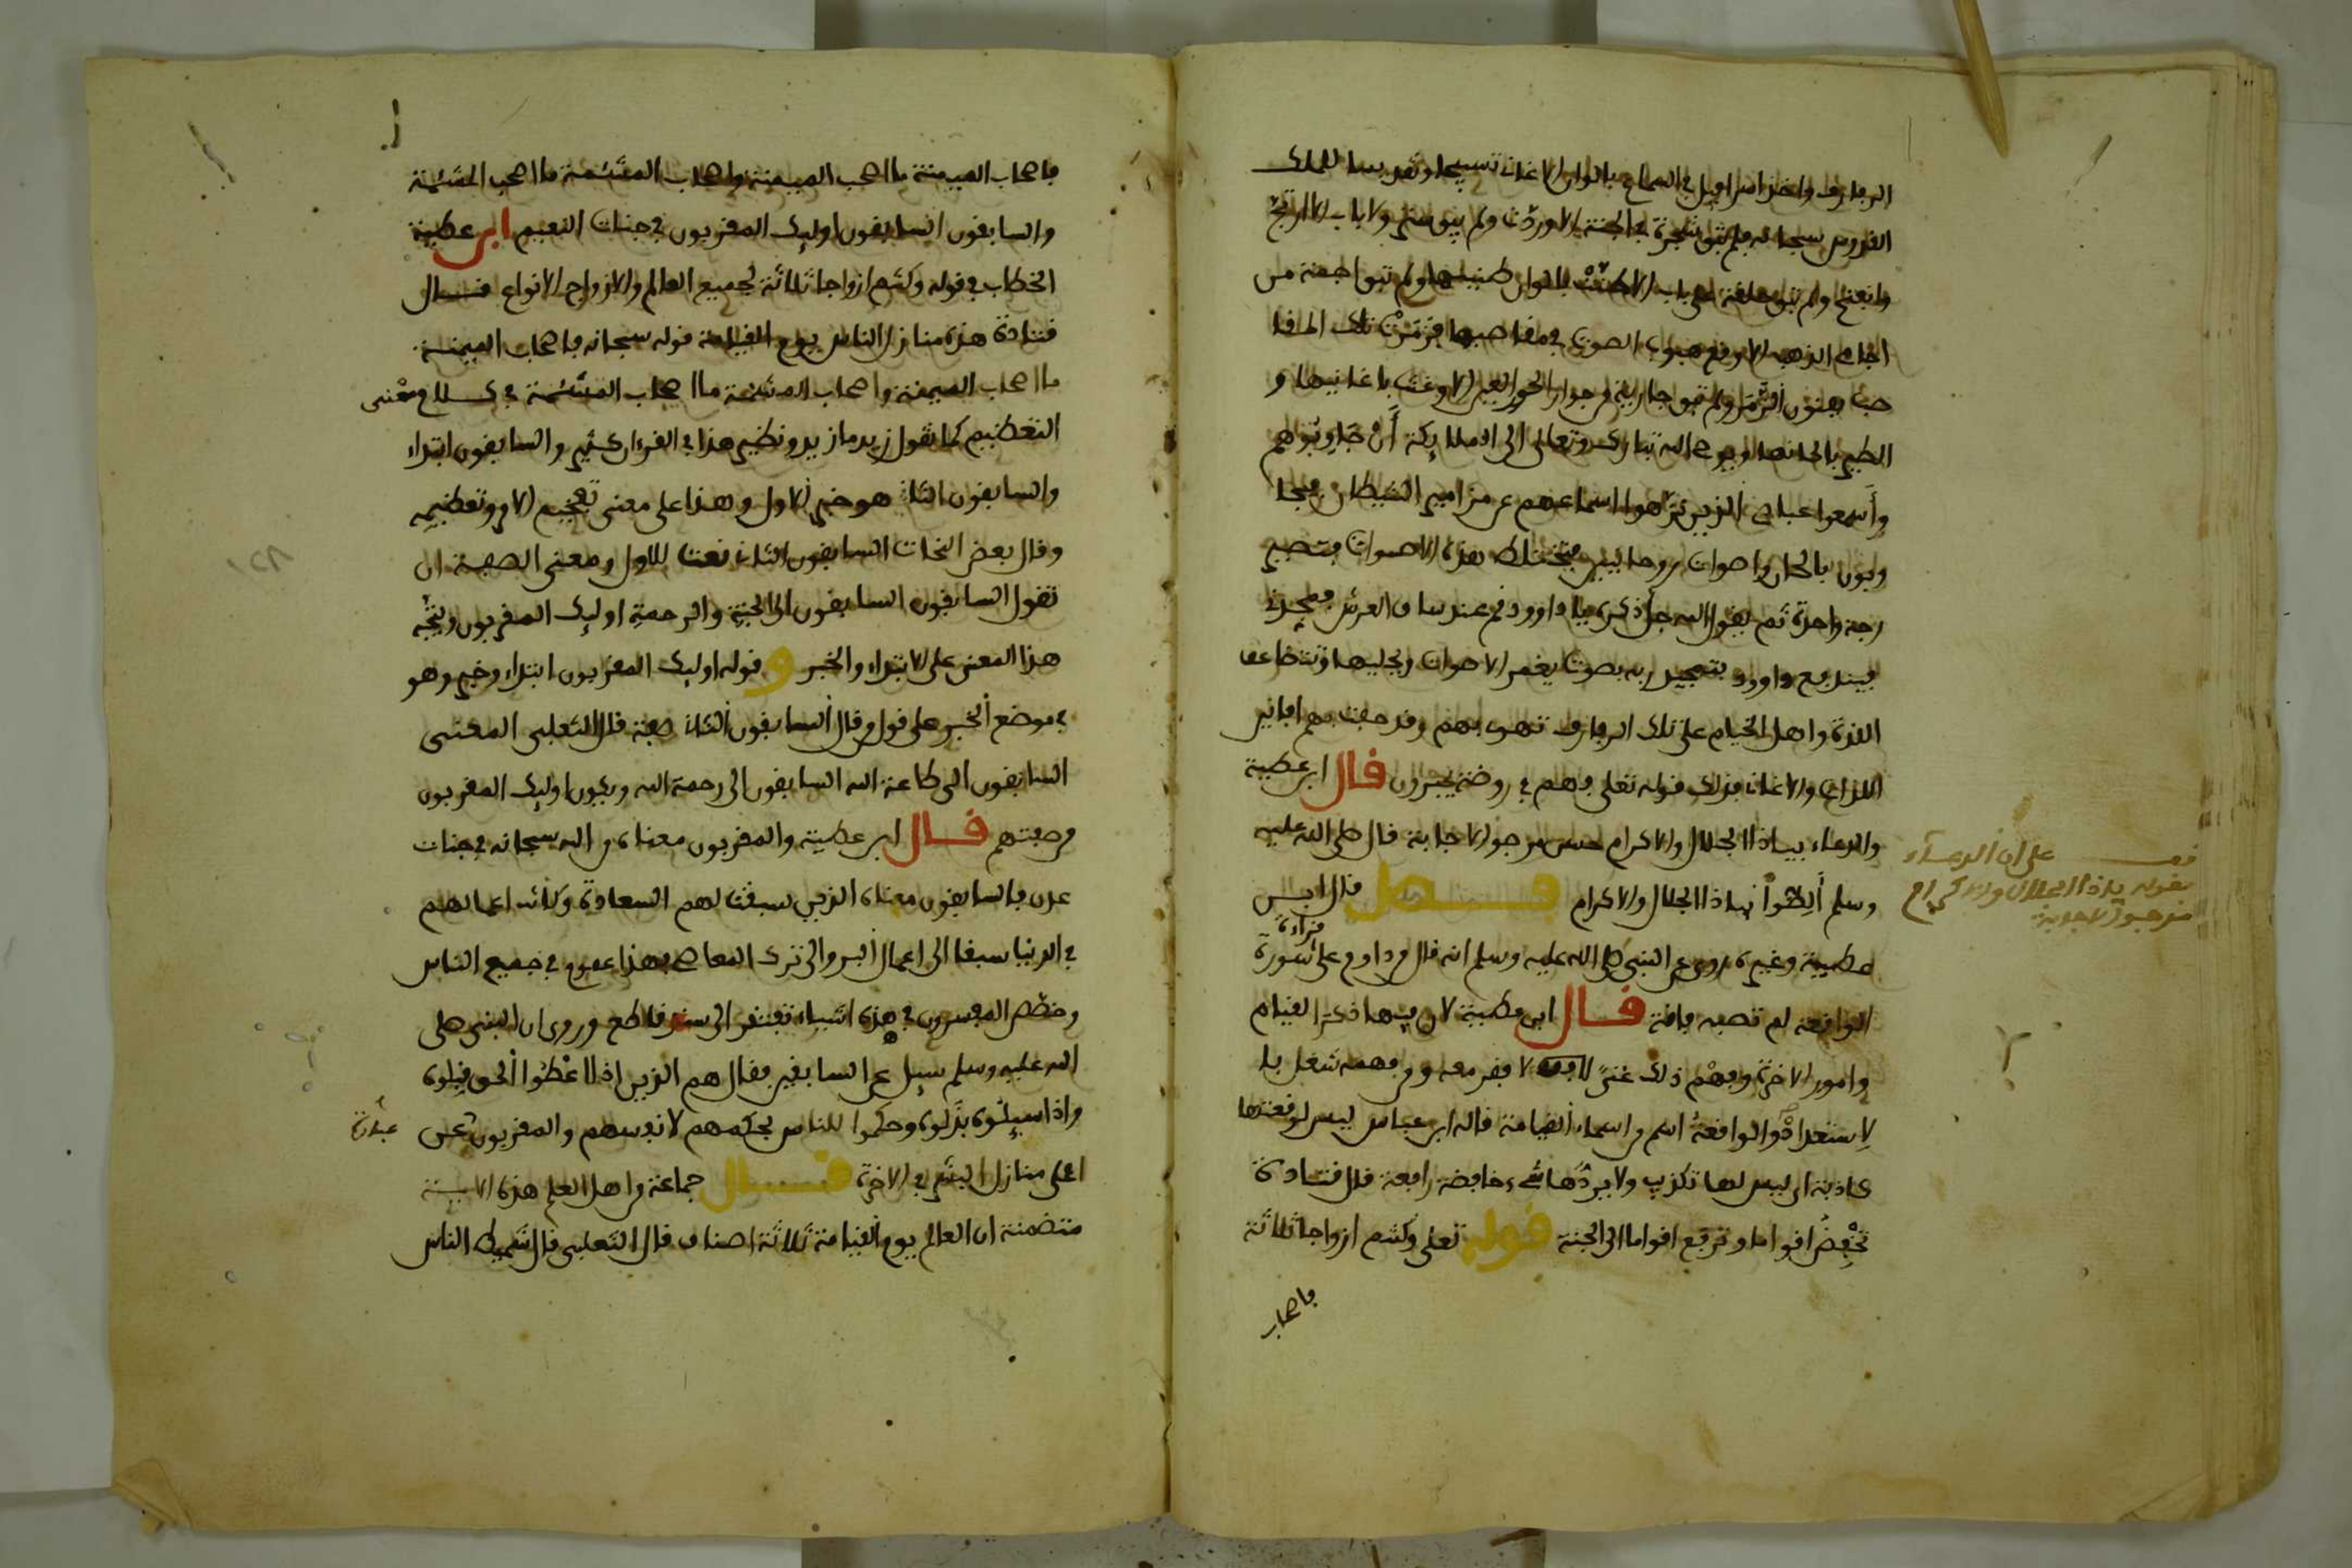 الرفارف واخذ اسرافيل في السماع بانواع الاغاني تسبيحا وتقديسا للملك
القدوس سبحانه فلم تبق شجرة في الجنة الا وردت ولم يبق ستر ولا باب الا ارتج
وانفتح ولم تبق حلقة على باب الا طنت بالوان طنينها ولم تبق اجمة من
اجام الذهب الا وقع هبوب الصوت في مقاصبها فزمرت تلك المقا
صب بفنون الزمر ولم تبق جارية من جوار الحور العين الا وغنت باغانيها و
الطير بالحانها ويوحي الله تبارك وتعالى الى الملايكة أن جاوبوهم
وأسمعوا عبادي الذين نزهوا اسماعهم عن مزامير الشيطان فيجا
وبون بالحان واصوات روحانيين فتختلط هذه الاصوات فتصير
رجة واحدة ثم يقول الله جل ذكره يا داوود قم عند ساق العرش فمجدني
فيندفع داوود بتمجيد ربه بصوت يغمر الاصوات ويجليها وتتضاعف
اللذة واهل الخيام على تلك الرفارف تهوي بهم وقد حفت بهم افانين
اللذات والاغاني فذلك قوله تعلى فهم في روضة يحبرون قال ابن عطية
والدعاء بياذا الجلال والاكرام حسن مرجو الاجابة قال صلى الله عليه
وسلم ألظوا بياذا الجلال والاكرام فصل قال ابن
عطية وغيره روي عن النبي صلى الله عليه وسلم انه قال من داوم على قراءة سورة
الواقعة لم تصبه فاقة قال ابن عطية لان فيها ذكر القيام
وامور الاخرة وفهم ذلك غنى لا فقر معه ومن فهمه شغل بلا
لاستعداد والواقعة اسم من اسماء القيامة قاله ابن عباس ليس لوقعتها
كاذبة اي ليس لها تكذيب ولا يردها شيء خافضة رافعة قال قتادة
تخفض اقواما وترفع اقواما الى الجنة قوله تعلى وكنتم ازواجا ثلاثة
فاصحاب
قف على ان الدعاء
بقوله ياذا الجلال والاكرام
مرجو الاجابة
فاصحاب الميمنة ما اصحب الميمنة واصحاب المشئمة ما اصحب المشئمة
والسابقون السابقون اوليك المقربون في جنات النعيم ابن عطية
الخطاب في قوله وكنتم ازواجا ثلاثة لجميع العالم والازواج الانواع قال
قتادة هذه منازل الناس يوم القيامة قوله سبحانه فاصحاب الميمنة
ما اصحاب الميمنة واصحاب المشئمة ما اصحاب المشئمة في كلام معنى
التعظيم كما تقول زيد ما زيد ونظير هذا في القرءان كثير والسابقون ابتداء
والسابقون الثاني هو خبر الاول وهذا على معنى تفخيم الامر وتعظيمه
وقال بعض النحاة السابقون الثاني نعت للاول ومعنى الصفة ان
تقول السابقون السابقون الى الجنة والرحمة اوليك المقربون ويتجه
هذا المعنى على الابتداء والخبر وقوله اوليك المقربون ابتداء وخبر وهو
في موضع الخبر على قول من قال السابقون الثاني صفة قال الثعلبي المعنى
السابقون الى طاعة الله السابقون الى رحمة الله ويكون اوليك المقربون
من صفتهم قال ابن عطية والمقربون معناه من الله سبحانه في جنات
عدن فالسابقون معناه الذين سبقت لهم السعادة وكانت اعمالهم
في الدنيا سبقا الى اعمال البر والى ترك المعاصي فهذا عموم في جميع الناس
وخصص المفسرون في هذه اشياء تفتقر الى سند قاطع وروي ان النبي صلى
الله عليه وسلم سيل عن السابقين فقال هم الذين اذا اعطوا الحق قبلوه
واذا سيلوه بذلوه وحكموا للناس بحكمهم لانفسهم والمقربون عبارة عن
اعلى منازل البشر في الاخرة قال جماعة من اهل العلم هذه الاية
متضمنة ان العالم يوم القيامة ثلاثة اصناف قال الثعلبي قال شميط الناس